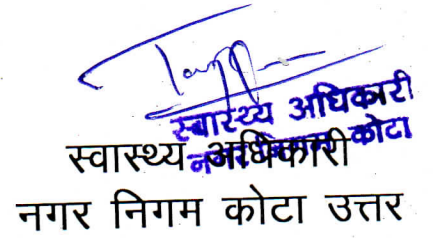 स्वास्थ्य अधिकारी
नगर निगम कोटा
स्वास्थ्य अधिकारी
नगर निगम कोटा उत्तर